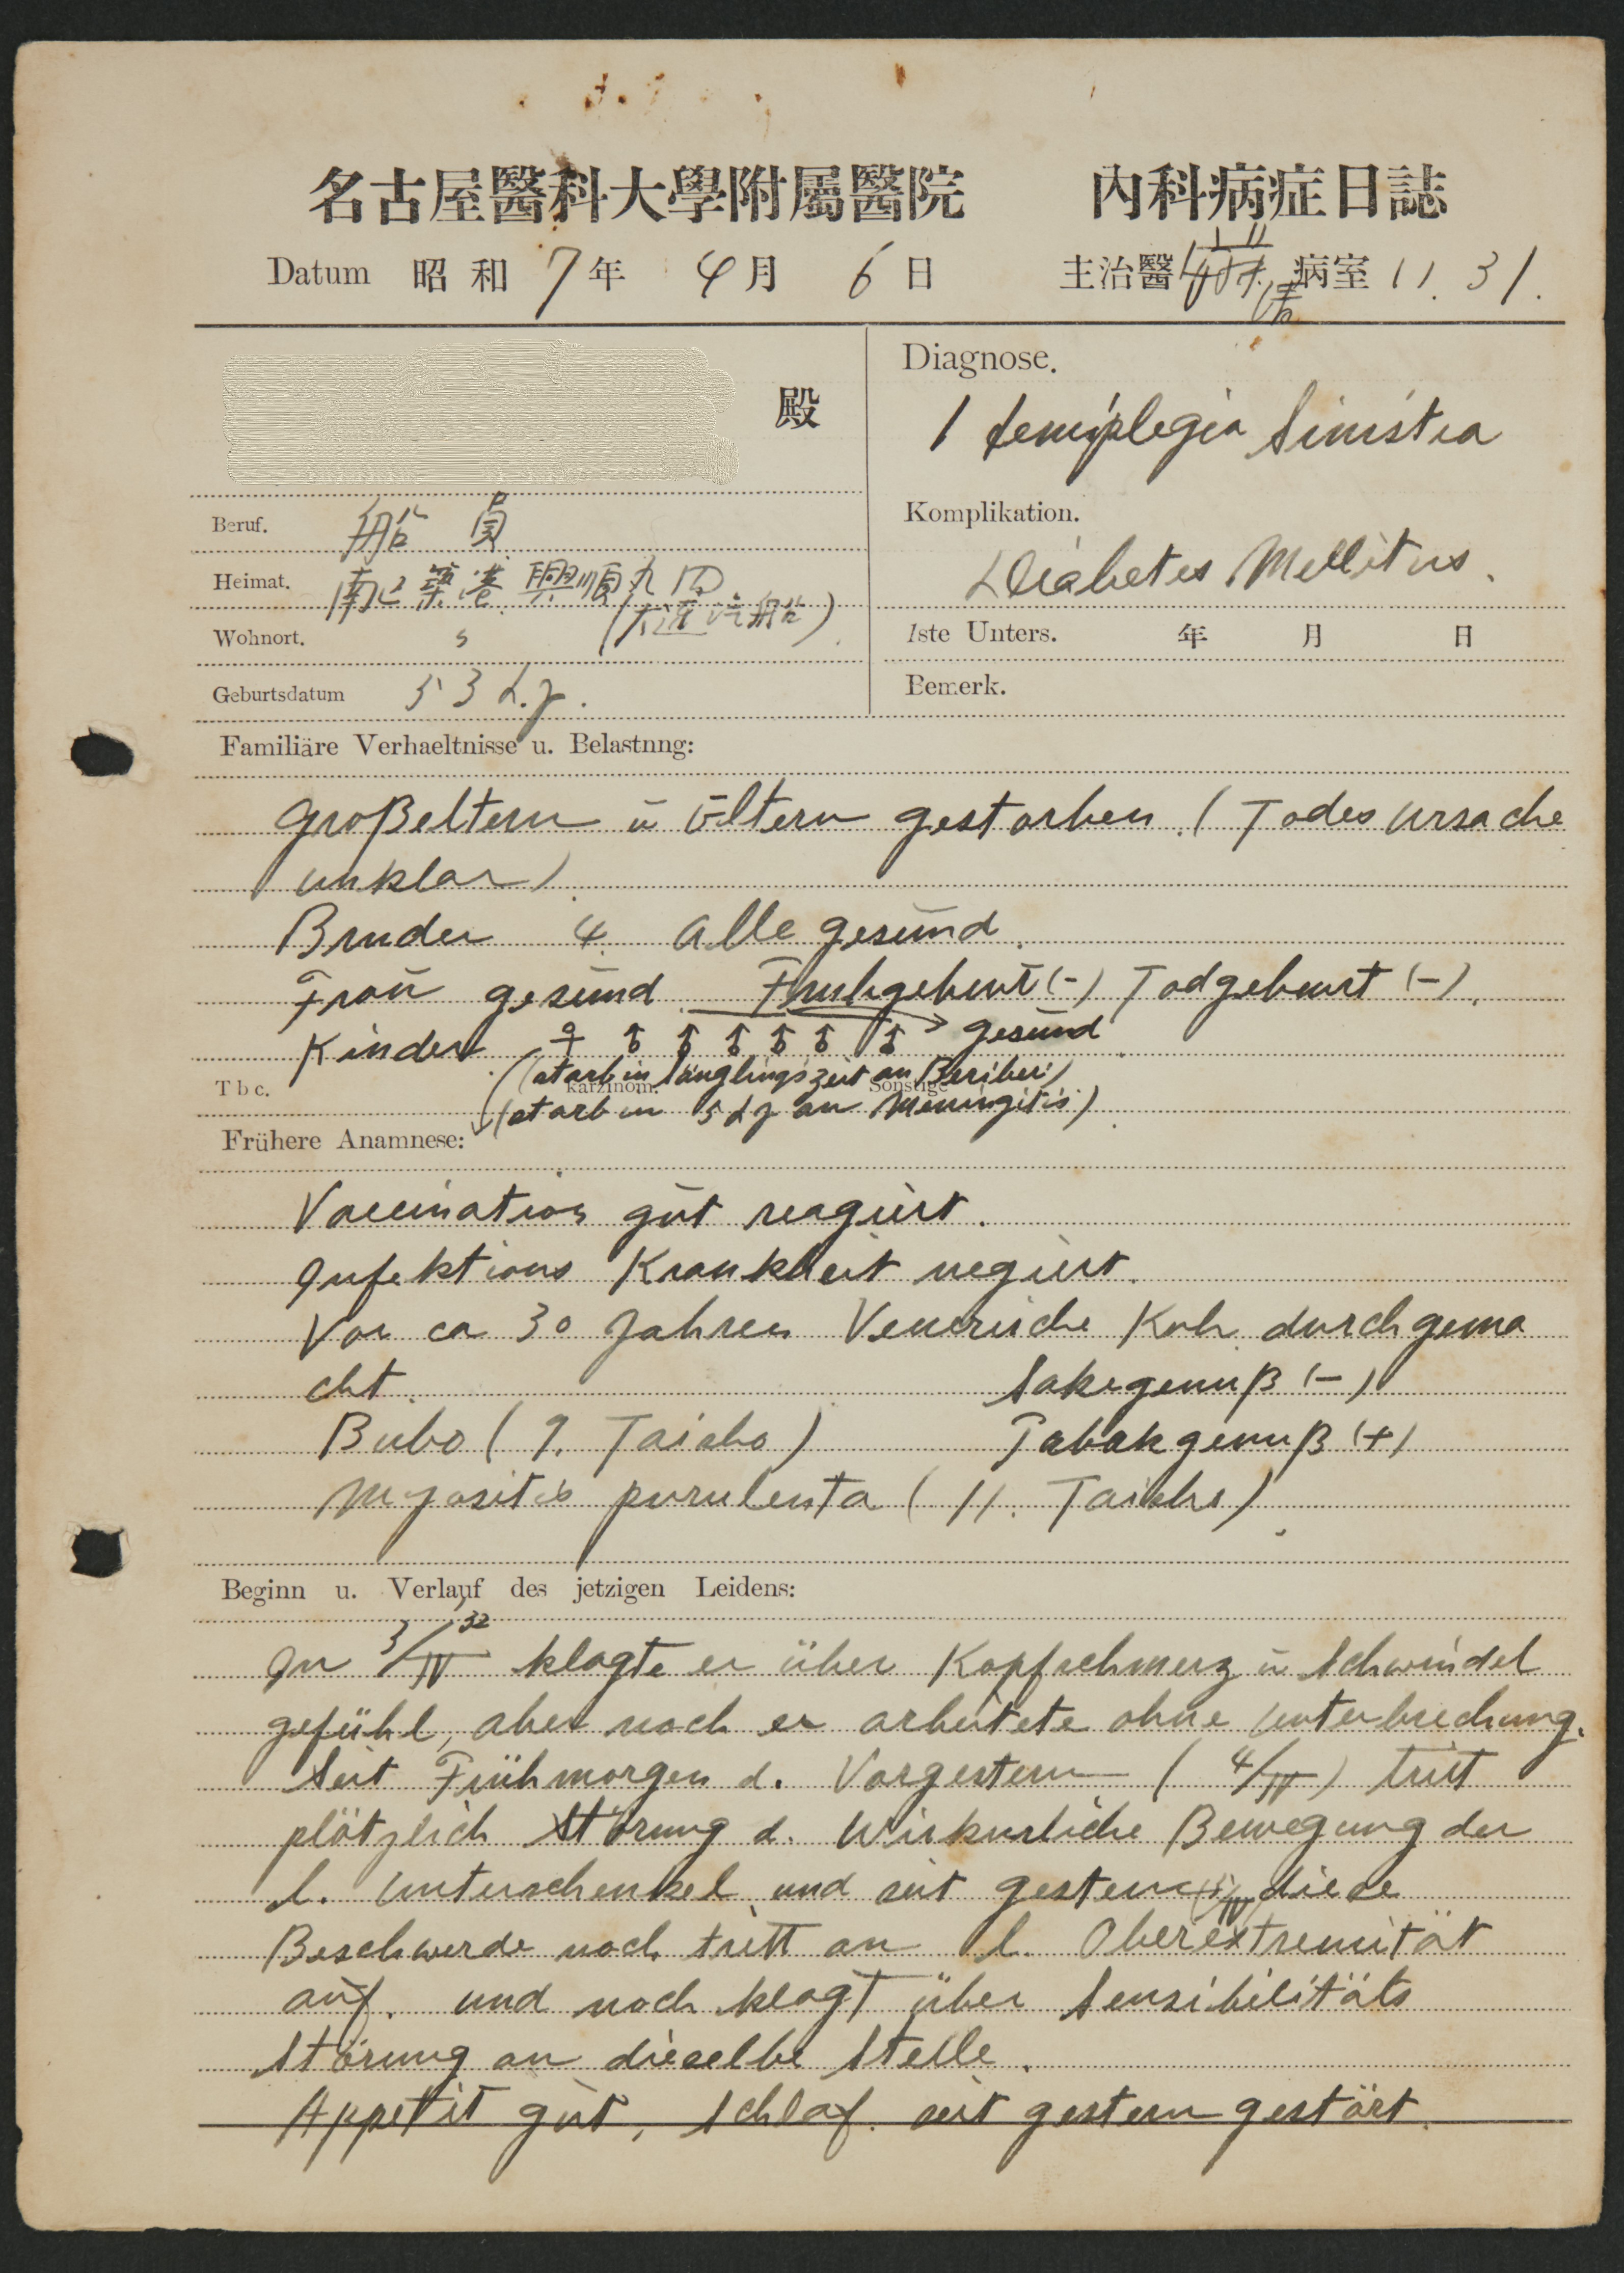 名古屋醫科大學附屬醫院 內科病症日誌
Datum 昭和 7年 4月 6日 主治醫 病室 11.31.
殿
Diagnose.
Hemiplegia Sinistra
Beruf. 船員
Komplikation.
Diabetes Mellitus.
Heimat. 築港 興順丸内
(大連汽船)
Wohnort. 〃
1ste Unters. 年 月 日
Geburtsdatum 53 L.J.
Bemerk.
Familiäre Verhaeltnisse u. Belastnng:
Großeltern ū Eltern gestorben. (Todesursache
unklar).
Bruder 4. alle gesund.
Frau gesund. Fruhgeburt (-) Todgeburt (-).
Kinder ♀ ♂ ♂ ♂ ♂ ♂ ♂ → gesund.
(starb in Säuglingszeit an Beriberi)
Tbc. karzinom. Sonstige
(starb in 5 LJ an Meningitis).
Frühere Anamnese:
Vaccination gut reagiert.
Infektions Krankheit negiert.
Vor ca 30 Jahren Venerische Krh. durchgema
cht. Sakegenuß (-)
Bubo (9. Taisho) Tabakgenuß (+)
Myositis purulenta (11. Taisho).
Beginn u. Verlauf des jetzigen Leidens:
In 3/IV 32 klagte er über Kopfschmerz ū Schwindel
gefühl, aber noch er arbeitete ohne Unterbrechung.
Seit Frühmorgen d. Vorgestern (4/IV) trit
plötzlich Störung d. Wirkurliche Bewegung der
l. Unterschenkel und seit gestern (5/IV) diese
Beschwerde noch tritt an l. Oberextremität
auf. und noch klagt über Sensibilitäts
Störung an dieselbe Stelle.
Appetit gut, Schlaf. seit gestern gestört.